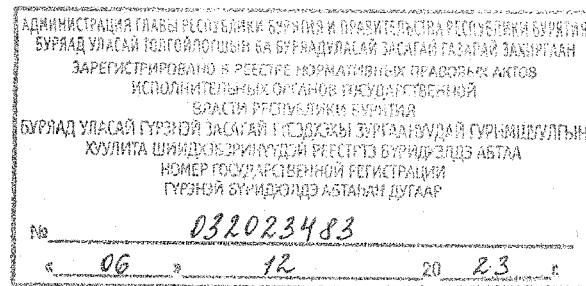 АДМИНИСТРАЦИЯ ГЛАВЫ РЕСПУБЛИКИ БУРЯТИЯ И ПРАВИТЕЛЬСТВА РЕСПУБЛИКИ БУРЯТИЯ
БУРЯАД УЛАСАЙ ТОЛГОЙЛОГШЫН БА БУРЯАД УЛАСАЙ ЗАСАГАЙ ГАЗАРАЙ ЗАХИРГААН
ЗАРЕГИСТРИРОВАНО В РЕЕСТРЕ НОРМАТИВНЫХ ПРАВОВЫХ АКТОВ
ИСПОЛНИТЕЛЬНЫХ ОРГАНОВ ГОСУДАРСТВЕННОЙ
ВЛАСТИ РЕСПУБЛИКИ БУРЯТИЯ
БУРЯАД УЛАСАЙ ГҮРЭНЭЙ ЗАСАГАЙ ЗУРГААНУУДАЙ
ХУУЛИТА РЕЕСТРТЭ АБТАА
НОМЕР ГОСУДАРСТВЕННОЙ РЕГИСТРАЦИИ
ГҮРЭНЭЙ БҮРИДХЭЛДЭ АБТАҺАН ДУГААР
№ 032023483
« 06 » 12 20 23 г.